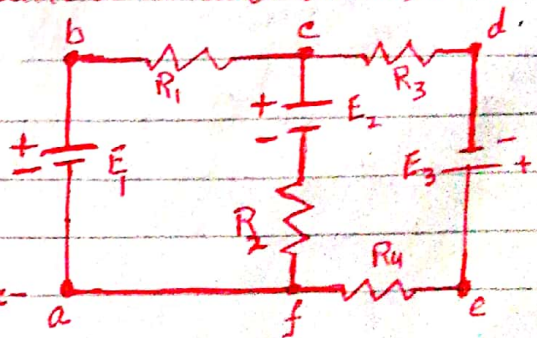 b c d.
R₁ R₃
+ E₂ -
+ - E₁ - E₃ +
R₂ R₄
a f e